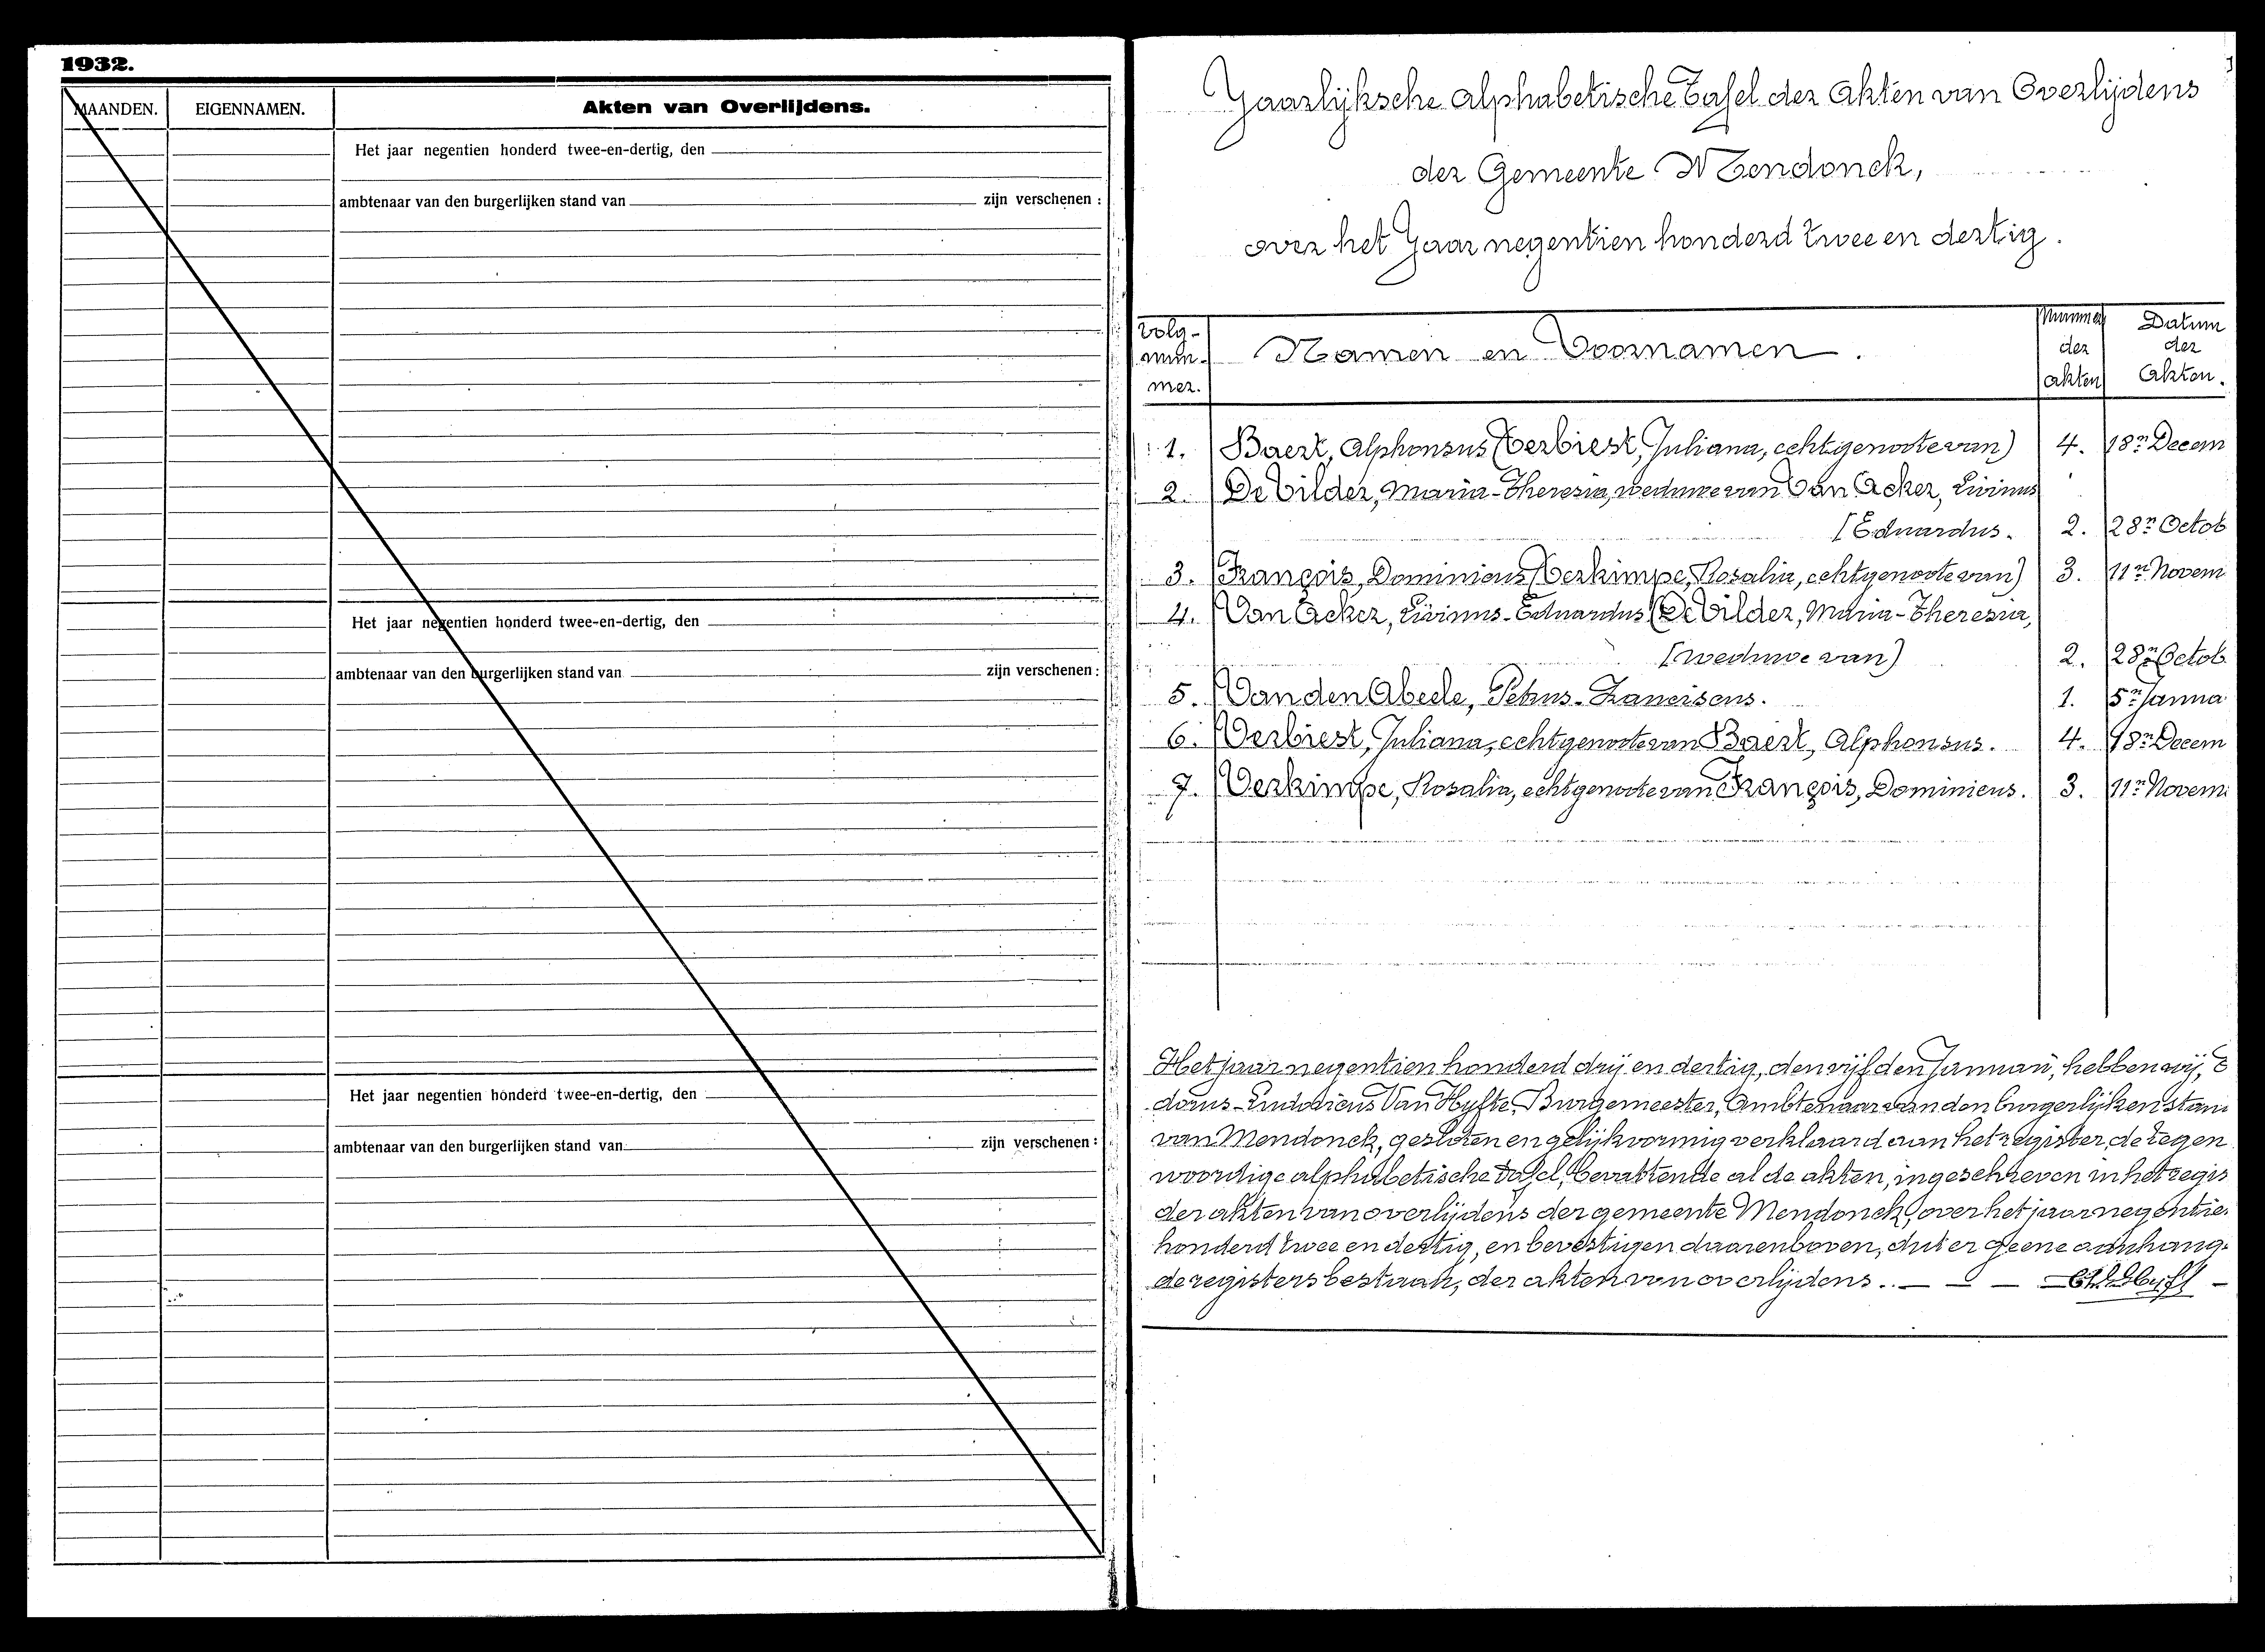 1932.
MAANDEN.
EIGENNAMEN.
Akten van Overlijdens.
Het jaar negentien honderd twee-en-dertig, den
ambtenaar van den burgerlijken stand van zijn verschenen :
Het jaar negentien honderd twee-en-dertig, den
ambtenaar van den burgerlijken stand van zijn verschenen :
Het jaar negentien honderd twee-en-dertig, den
ambtenaar van den burgerlijken stand van zijn verschenen :
Jaarlijksche alphabetische Tafel der Akten van Overlijdens
der Gemeente Mendonck,
over het Jaar negentien honderd twee en dertig.
Volg-
num-
mer.
Namen en Voornamen.
Nummer
der
akten
Datum
der
Akten.
1. Baert, Alphonsus (Verbiest, Juliana, echtgenoote van) 4. 18n Decem
2. De Vilder, Maria-Theresia, weduwe van Van Acker, Livinus
[Eduardus. 2. 28n Octob
3. François, Dominicus (Verkimpe, Rosalia, echtgenoote van) 3. 11n Novem
4. Van Acker, Livinus-Eduardus (De Vilder, Maria-Theresia,
[weduwe van) 2. 28n Octob
5. Van den Abeele, Petrus-Franciscus. 1. 5n Janua
6. Verbiest, Juliana, echtgenoote van Baert, Alphonsus. 4. 18n Decem
7. Verkimpe, Rosalia, echtgenoote van François, Dominicus. 3. 11n Novem
Het jaar negentien honderd drij en dertig, den vijfden Januari, hebben wij,
dorus-Ludovicus Van Hyfte, Burgemeester, Ambtenaar van den burgerlijken stan
van Mendonck, gesloten en gelijkvormig verklaard aan het register, de tegen
woordige alphabetische tafel, bevattende al de akten, ingeschreven in het regis
der akten van overlijdens der gemeente Mendonck, over het jaar negentie
honderd twee en dertig, en bevestigen daarenboven, dat er geene aanhang-
de registers bestaan, der akten van overlijdens.